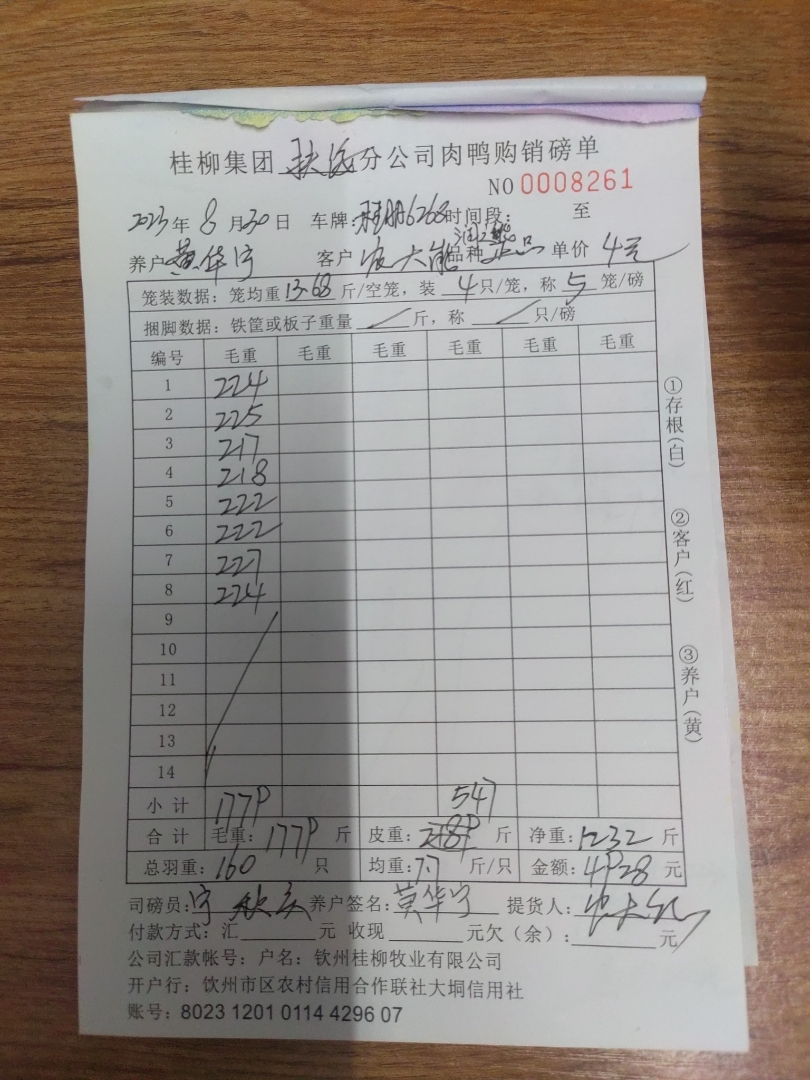 桂柳集团 分公司肉鸭购销磅单
NO 0008261
2023年 8月30日 车牌: 6268 时间段: 至
养户 黄华宇 客户 农大能 品种 单价 4元
笼装数据: 笼均重13.68斤/空笼, 装 4只/笼, 称 5 笼/磅
捆脚数据: 铁筐或板子重量 / 斤, 称 / 只/磅
编号 毛重 毛重 毛重 毛重 毛重 毛重
1 224
2 225
3 217
4 218
5 222
6 222
7 227
8 224
9
10
11
12
13
14
小计 1779 547
合计 毛重: 1779 斤 皮重: 斤 净重: 1232 斤
总羽重: 160 只 均重: 7.7 斤/只 金额: 4928 元
司磅员: 养户签名: 黄华宇 提货人:
付款方式: 汇 元 收现 元欠(余): 元
公司汇款帐号: 户名: 钦州桂柳牧业有限公司
开户行: 钦州市区农村信用合作联社大垌信用社
账号: 8023 1201 0114 4296 07
①存根(白)
②客户(红)
③养户(黄)